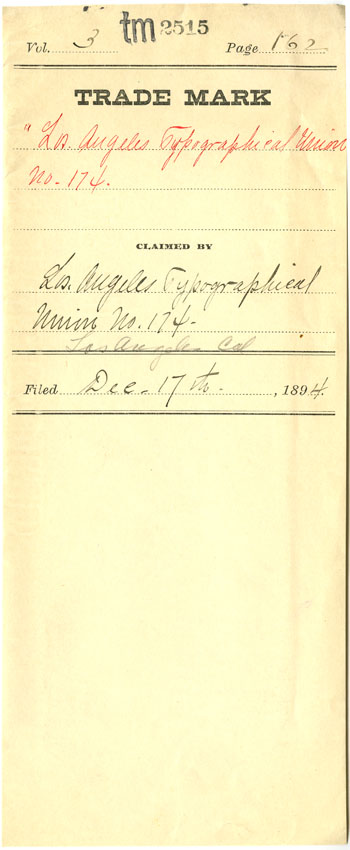 Vol. 3 tm 2515 Page 162
TRADE MARK
"Los Angeles Typographical Union
No. 174.
CLAIMED BY
Los Angeles Typographical
Union No. 174.
Los Angeles Cal
Filed Dec. 17th. , 1894.